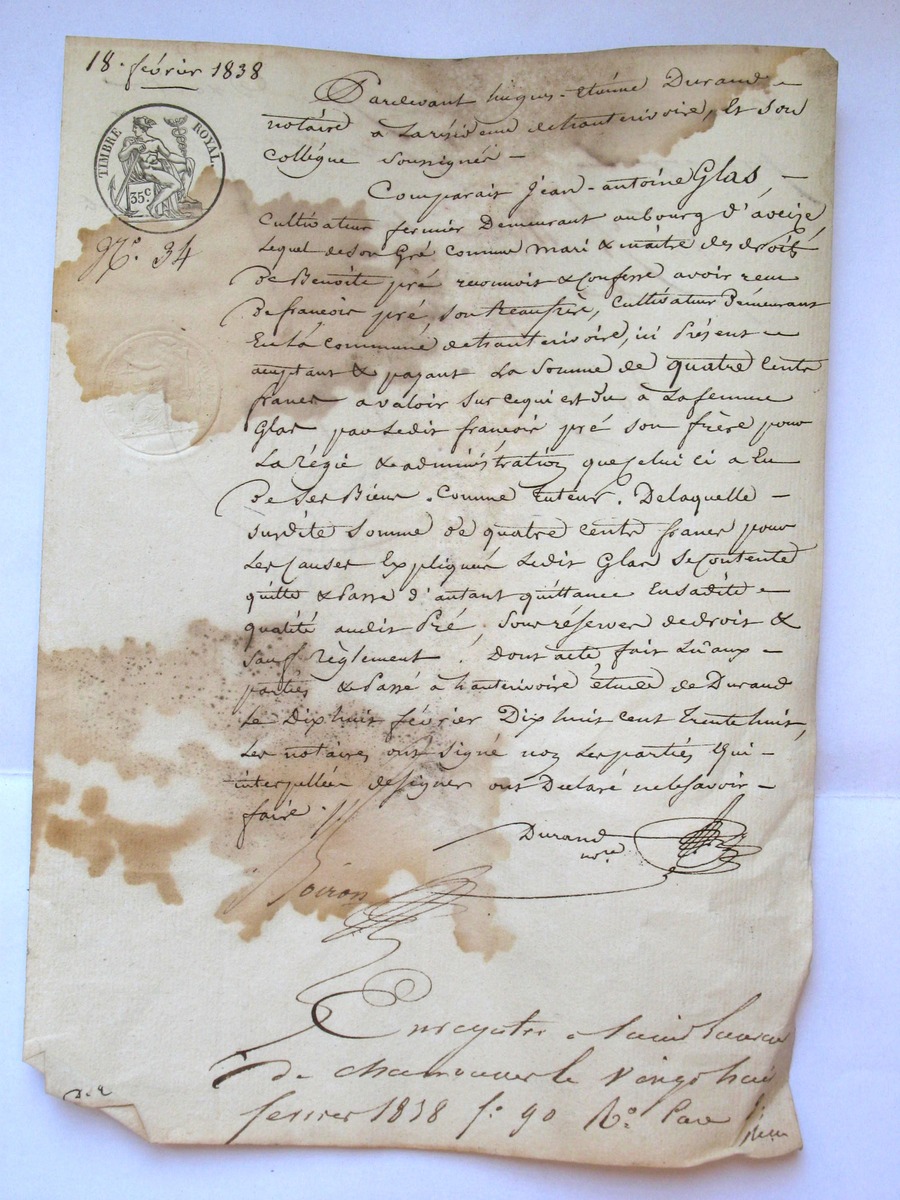 18. février 1838
TIMBRE ROYAL.
35 c.
N.° 34
Pardevant hugues-Etiénne Durand
notaire à La résidence de hauterivoire, Et son
collégue soussignés
Comparait Jean-antoine Glas,
Cultivateur fermier Demeurant au bourg d'aveize
Lequel de son Gré comme mari & maitre des droits
De Benoite pré reconnoit & Confesse avoir reçu
De francois pré, son Beaufrère, Cultivateur Demeurant
En La communé de hauterivoire, ici Présent
acceptant & payant La Somme de quatre Cents
francs a valoir sur ce qui est Du à La femme
Glas par Ledit francois pré son frère pour
La régie & administration que Celui ci a Eu
De ses Biens. Comme tuteur. De laquelle
surdite somme de quatre cents francs pour
Les causes Expliqueés Ledit Glas se Contente
quitte & Passe d'autant quittance En sadite
qualité audit Pré, Sous réserves de droit &
sauf règlement. Dont acte, fait Lu aux
parties & Passé à hauterivoire étude de Durand
Le Dix huit février Dix huit cent trente huit,
Les notaires ont signé non Les parties qui
interpellées de signer ont Declaré ne le savoir
faire.
Durand
nre
Boiron
Enregistré a Saint Laurent
de chamousset le vingt huit
fevrier 1838 f.° 90 R.°